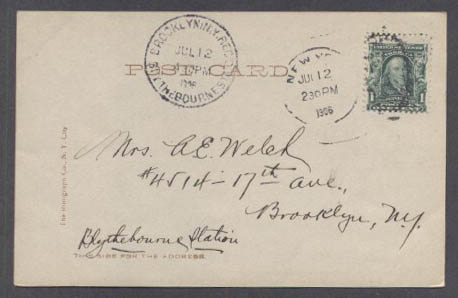 BROOKLYN, N.Y. REC'D
JUL 12
PM
1906
BLYTHEBOURNE STA.
NEW
JUL 12
230 PM
1906
1
POST CARD
Mrs. A.E. Welch
#4514-17th ave.,
Brooklyn, N.Y.
Blythebourne Station
THIS SIDE FOR THE ADDRESS.